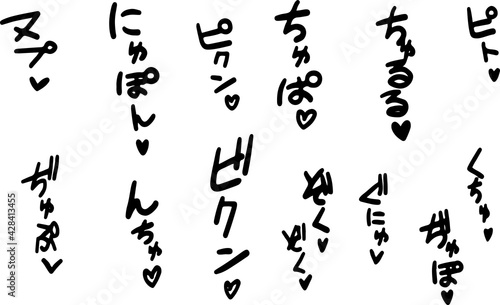 ピト♥
ちゅるる♥
ちゅぽ♥
ピクン♡
にゅぽん♥
くちゅ♥
ぢゅぽ♥
ぐにゅ♥
ぞく♥
ぞく♥
ビクン♡
んちゅ♡
ぢゅぷ♥
Adobe Stock | #428413455